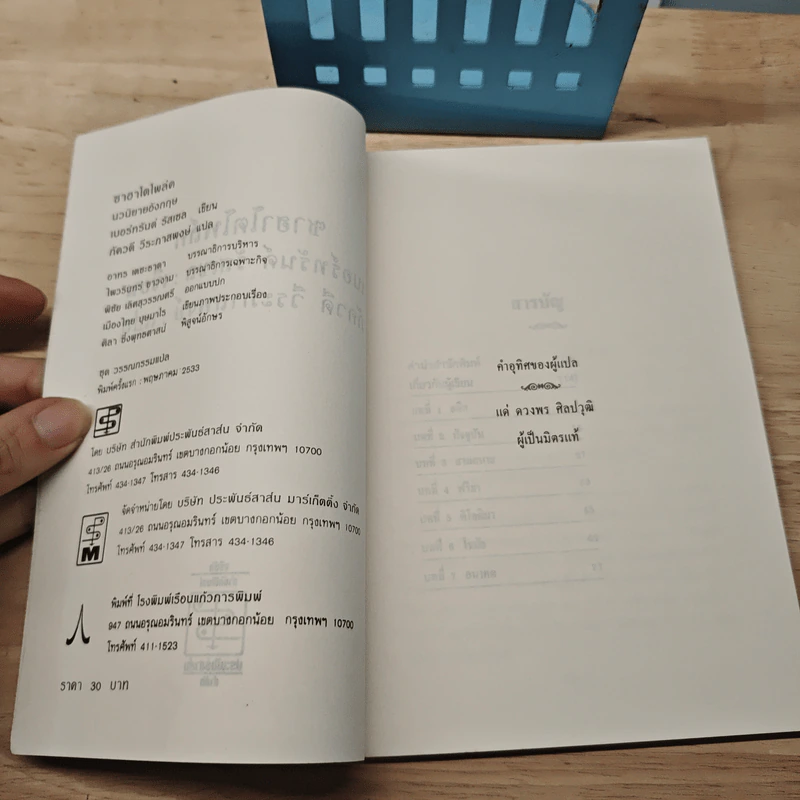 ซาฮาโตโพล์ค
นวนิยายอังกฤษ
เบอร์ทรันด์ รัสเซล เขียน
ภัควดี วีระภาสพงษ์ แปล
อาทร เตชะธาดา บรรณาธิการบริหาร
ไพวรินทร์ ขาวงาม บรรณาธิการเฉพาะกิจ
พิชัย เลิศสุวรรณศรี ออกแบบปก
เมืองไทย บุษมาโร เขียนภาพประกอบเรื่อง
ศิลา ซึ้งพุทธศาสน์ พิสูจน์อักษร
ชุด วรรณกรรมแปล
พิมพ์ครั้งแรก : พฤษภาคม 2533
โดย บริษัท สำนักพิมพ์ประพันธ์สาส์น จำกัด
413/26 ถนนอรุณอมรินทร์ เขตบางกอกน้อย กรุงเทพฯ 10700
โทรศัพท์ 434-1347 โทรสาร 434-1346
จัดจำหน่ายโดย บริษัท ประพันธ์สาส์น มาร์เก็ตติ้ง จำกัด
413/26 ถนนอรุณอมรินทร์ เขตบางกอกน้อย กรุงเทพฯ 10700
โทรศัพท์ 434-1347 โทรสาร 434-1346
M
พิมพ์ที่ โรงพิมพ์เรือนแก้วการพิมพ์
947 ถนนอรุณอมรินทร์ เขตบางกอกน้อย กรุงเทพฯ 10700
โทรศัพท์ 411-1523
ราคา 30 บาท
คำอุทิศของผู้แปล
แด่ ดวงพร ศิลปวุฒิ
ผู้เป็นมิตรแท้